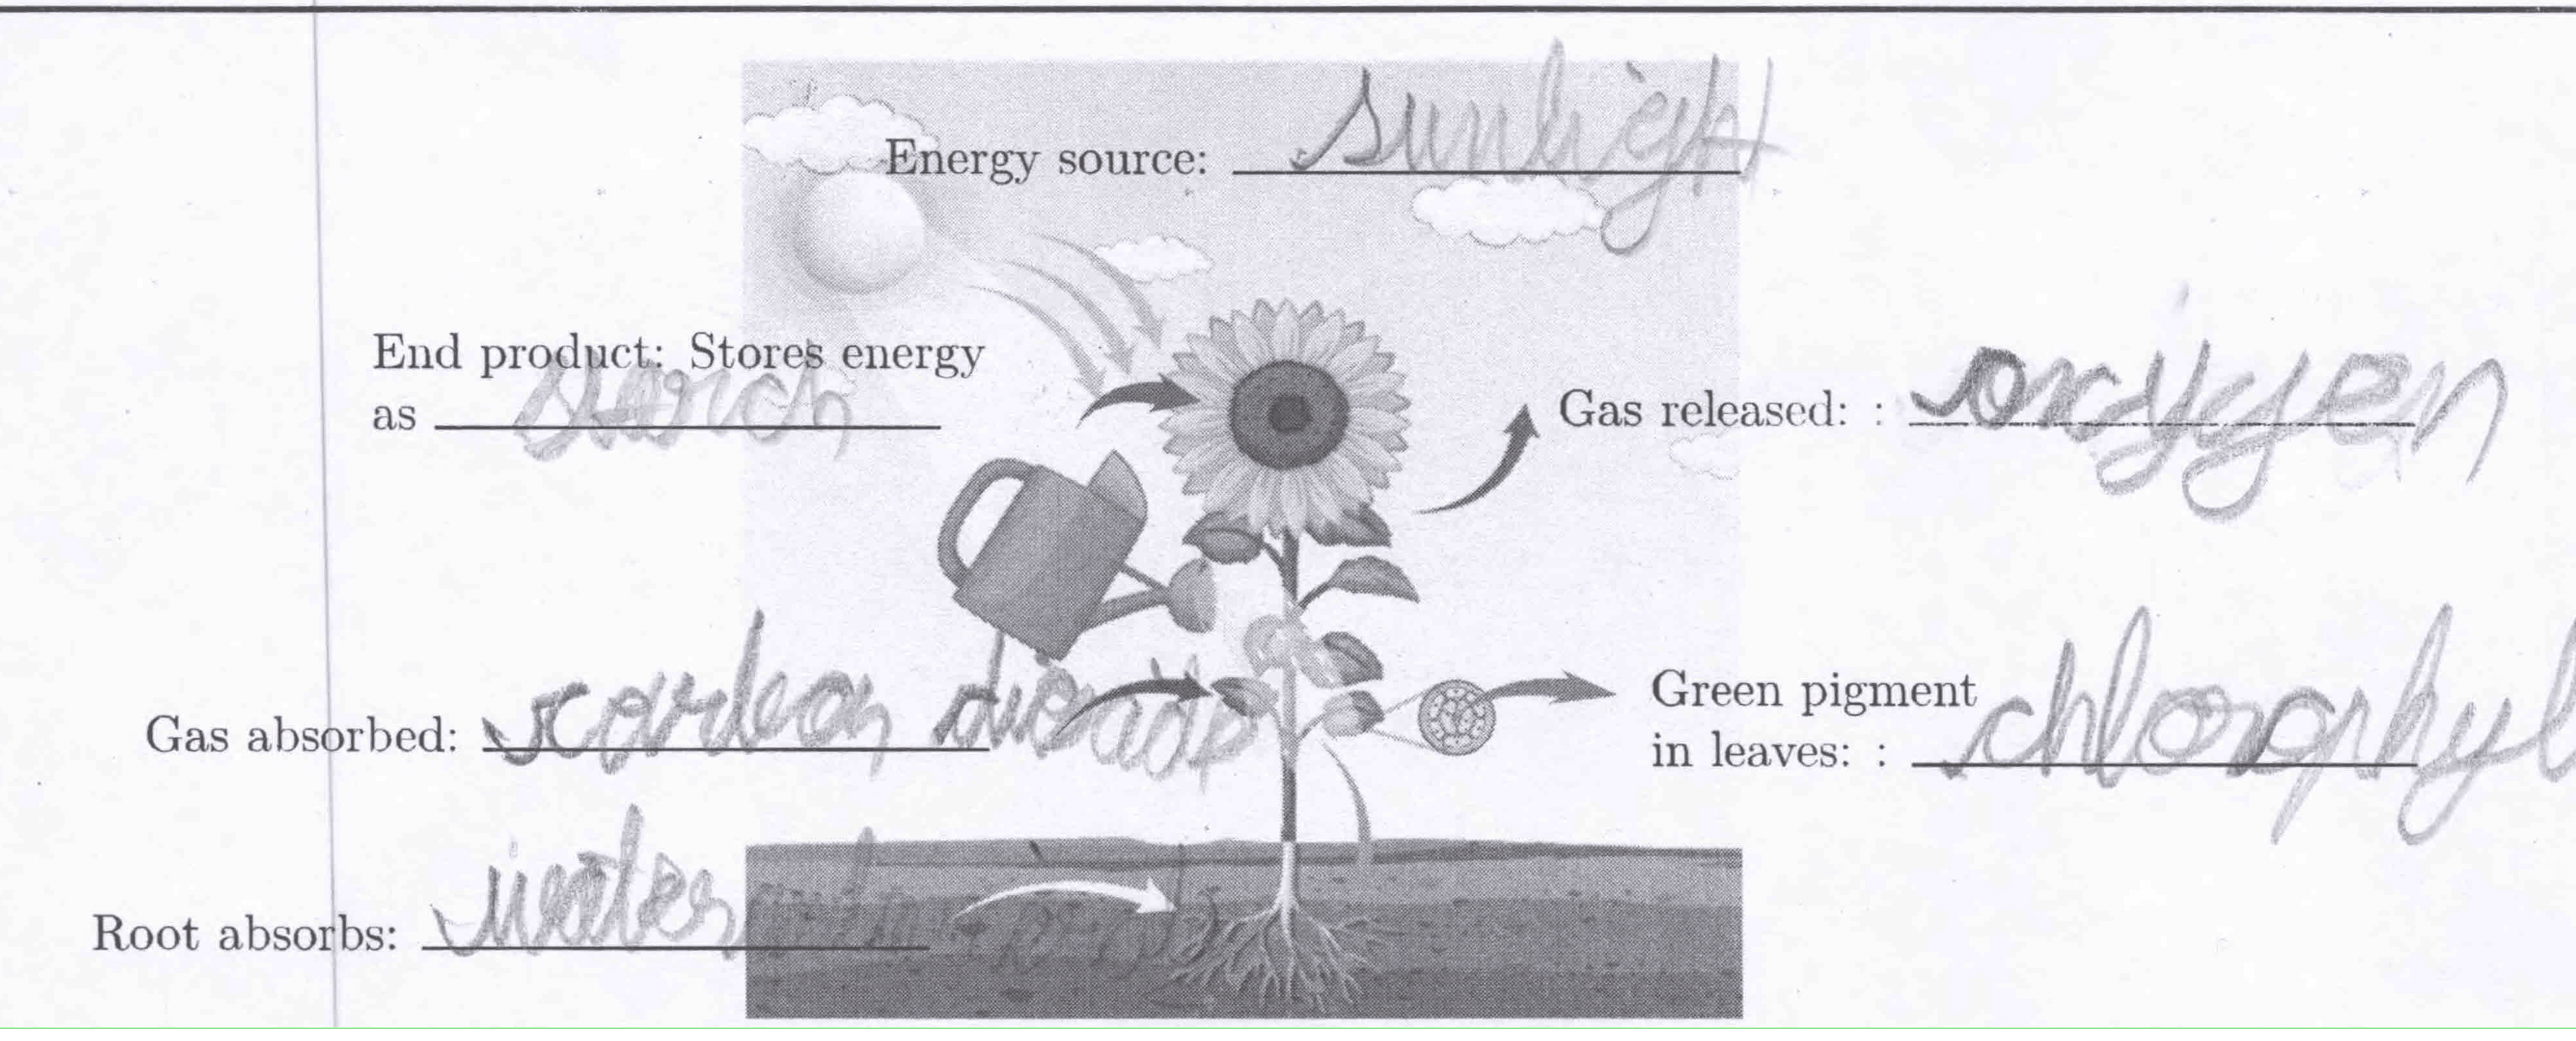 Energy source: sunlight
End product: Stores energy
as starch
Gas released: : oxygen
Gas absorbed: carbon dioxide
Green pigment
in leaves: : chlorophyl
Root absorbs: water